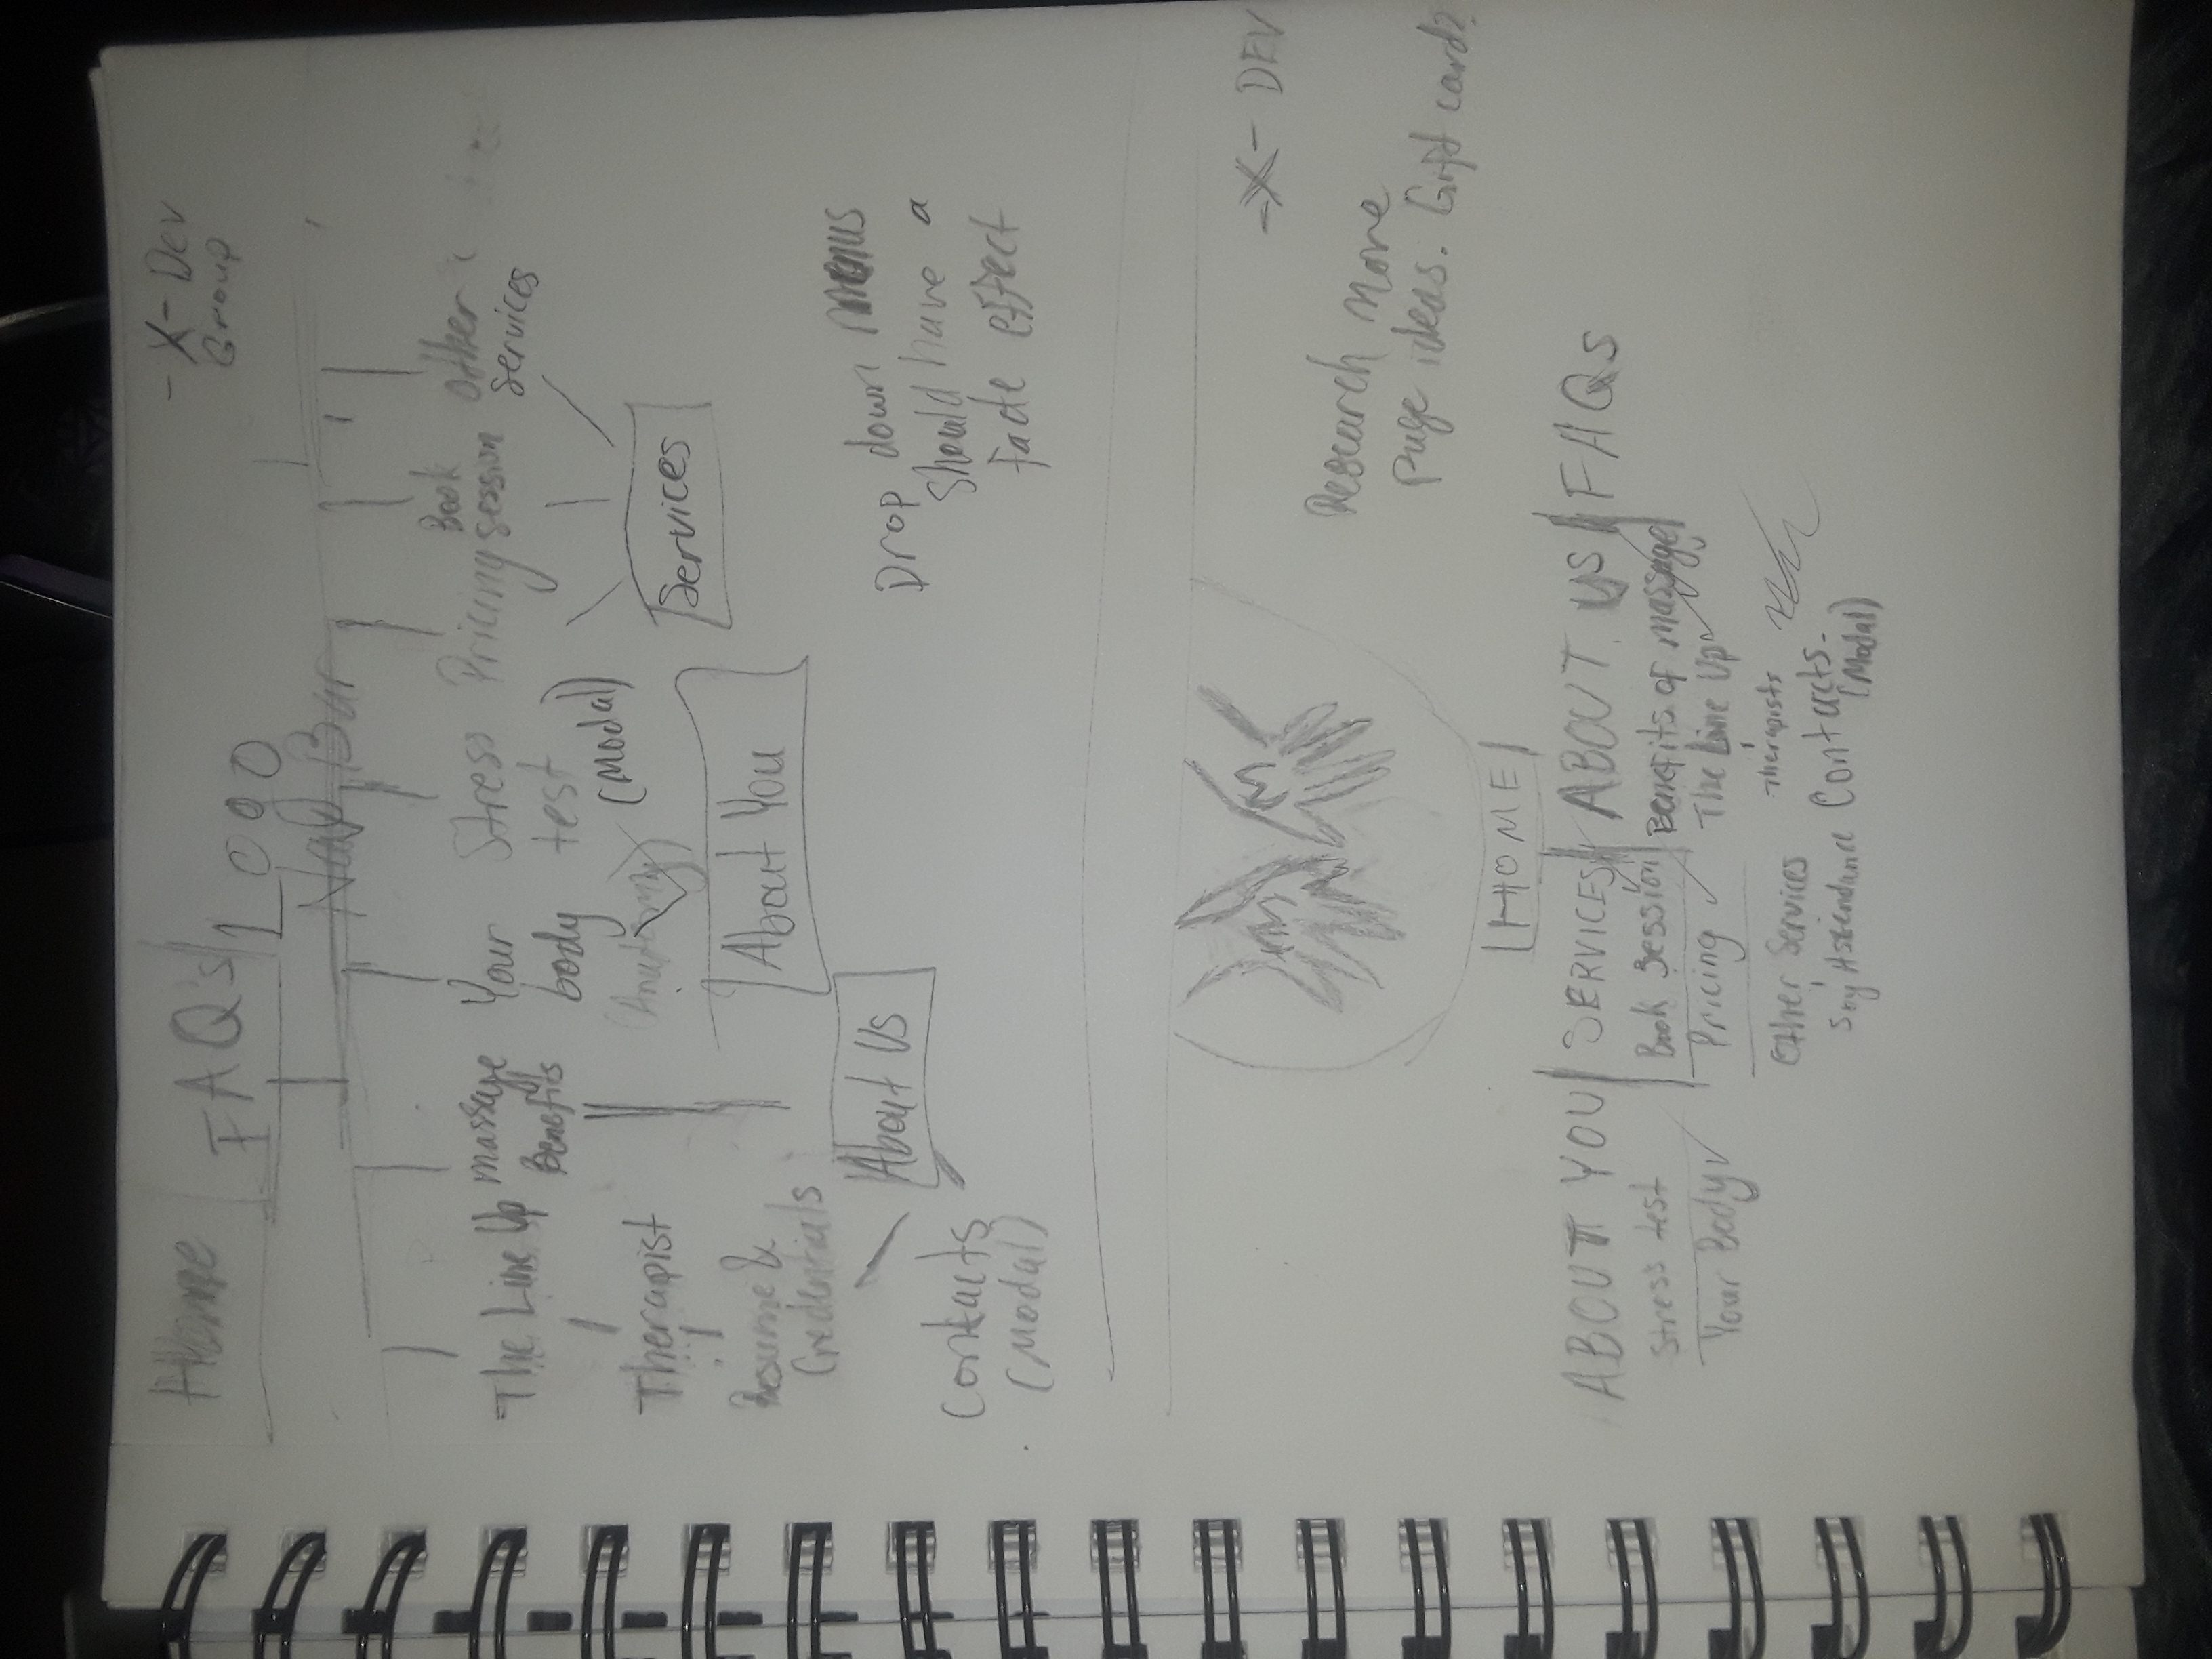 Home
FAQ's
Logo
-X- Dev
Group
Nav Bar
The Line Up
massage
Benefits
Your
body
(Anatomy)
Stress
test
(Modal)
Pricing
Book
session
other
services
Therapist
Resume &
Credentials
About You
Services
About Us
Contacts
(Modal)
Drop down menus
should have a
fade effect
M M
-X- DEV
Research more
page ideas. Gift card?
HOME
ABOUT YOU
Stress test
Your Body
SERVICES
Book Session
Pricing
Other Services
ABOUT US
Benefits of massage
The Line Up
Therapists
Contacts.
(Modal)
FAQs